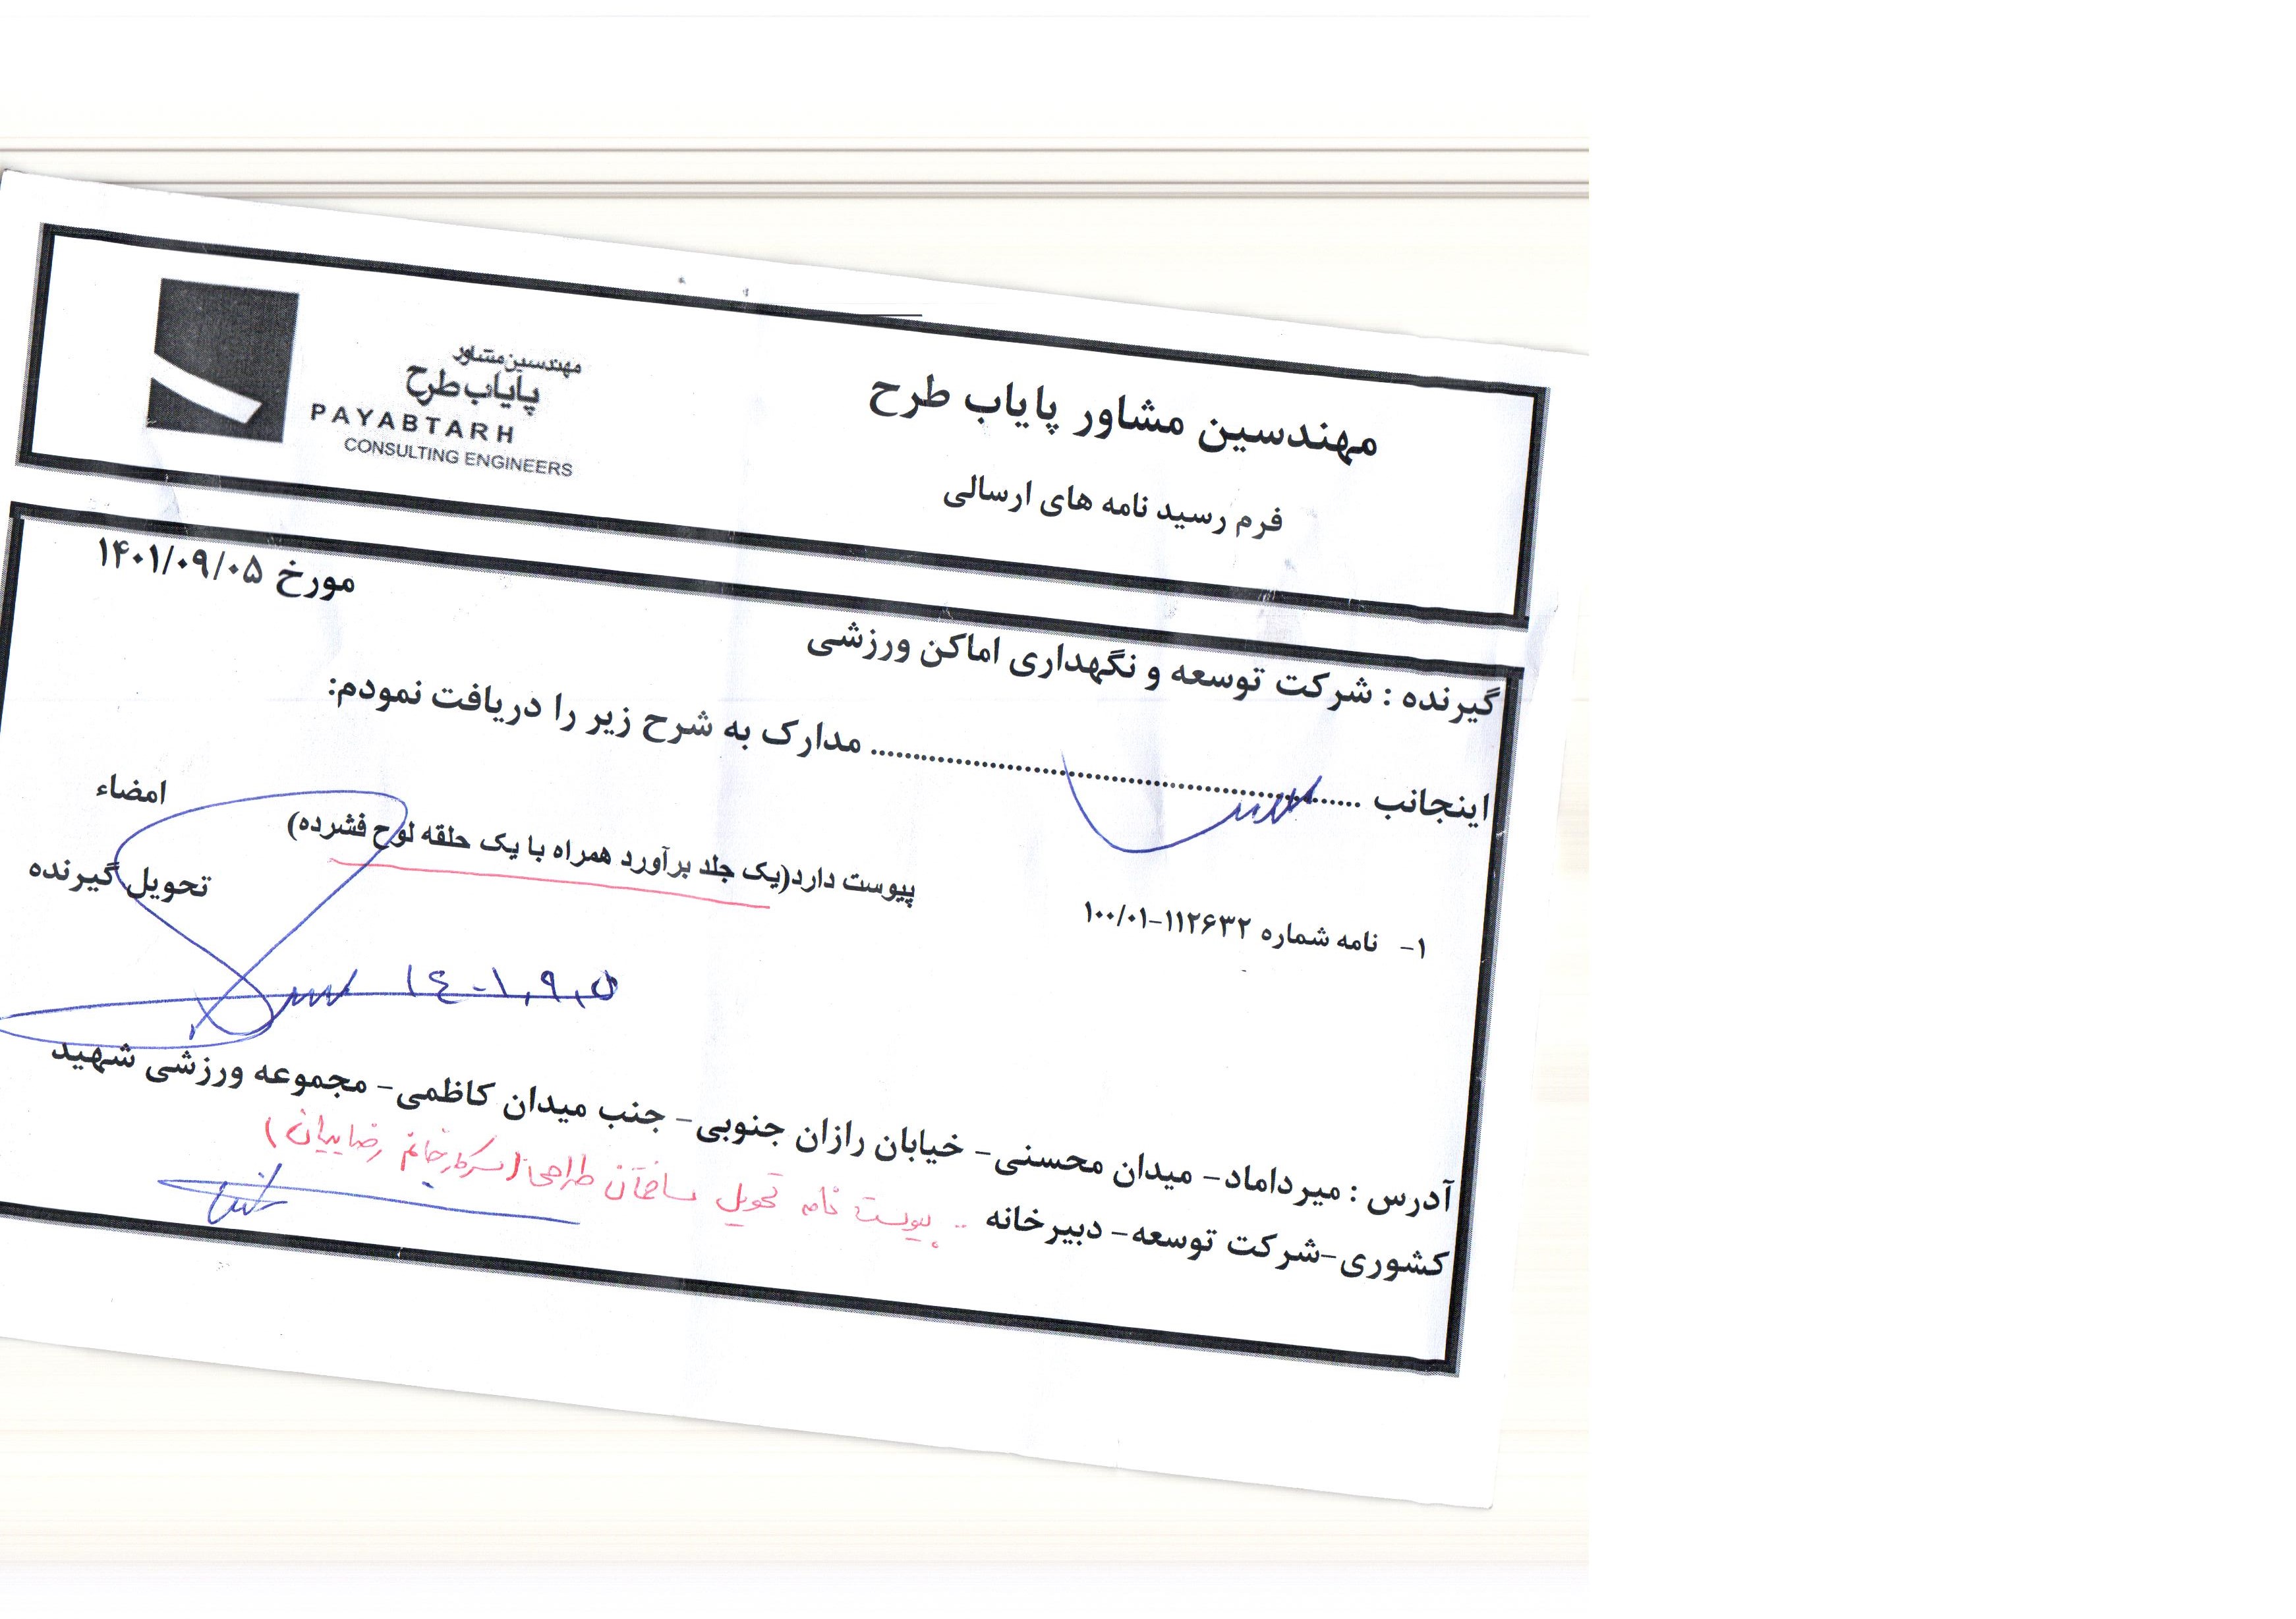 مهندسین مشاور پایاب طرح
مهندسین مشاور
پایاب طرح
PAYABTARH
CONSULTING ENGINEERS
فرم رسید نامه های ارسالی
مورخ ۱۴۰۱/۰۹/۰۵
گیرنده : شرکت توسعه و نگهداری اماکن ورزشی
اینجانب .......................................................... مدارک به شرح زیر را دریافت نمودم:
۱- نامه شماره ۱۱۲۶۳۲-۱۰۰/۰۱ پیوست دارد(یک جلد برآورد همراه با یک حلقه لوح فشرده)
امضاء
تحویل گیرنده
۱۴۰۱,۹,۵
آدرس : میرداماد- میدان محسنی- خیابان رازان جنوبی- جنب میدان کاظمی- مجموعه ورزشی شهید
کشوری-شرکت توسعه- دبیرخانه
پیوست نامه تحویل ساختمان طراحی (سرکار خانم رضاییان)